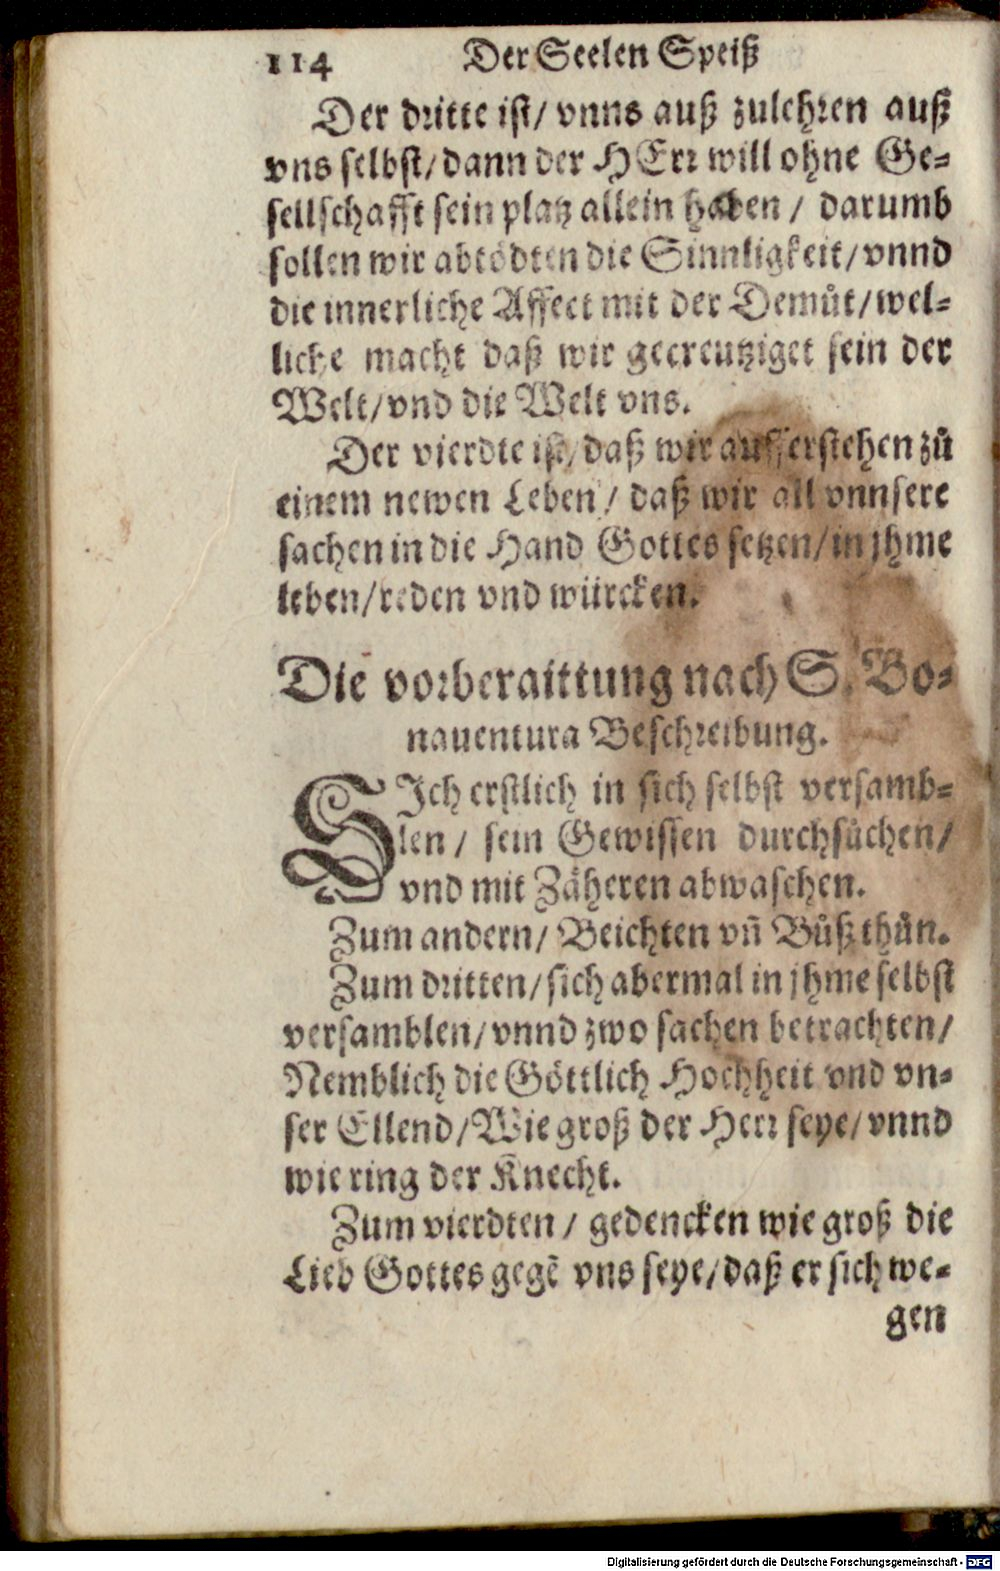 114 Der Seelen Speiß
Der dritte ist/ vnns auß zulehren auß
vns selbst/ dann der HErr will ohne Ge-
sellschafft sein platz allein haben / darumb
sollen wir abtödten die Sinnligkeit/ vnnd
die innerliche Affect mit der Demůt/ wel-
liche macht daß wir gecreutziget sein der
Welt/ vnd die Welt vns.
Der vierdte ist/ daß wir aufferstehen zů
einem newen Leben / daß wir all vnnsere
sachen in die Hand Gottes setzen/ in jhme
leben/ reden vnd würcken.
Die vorberaittung nach S. Bo-
nauentura Beschreibung.
SIch erstlich in sich selbst versamb-
len / sein Gewissen durchsůchen/
vnd mit Zäheren abwaschen.
Zum andern/ Beichten vñ Bůß thůn.
Zum dritten/ sich abermal in jhme selbst
versamblen/ vnnd zwo sachen betrachten/
Nemblich die Göttlich Hochheit vnd vn-
ser Ellend/ Wie groß der Herr seye/ vnnd
wie ring der Knecht.
Zum vierdten / gedencken wie groß die
Lieb Gottes gegẽ vns seye/ daß er sich we-
gen
Digitalisierung gefördert durch die Deutsche Forschungsgemeinschaft - DFG